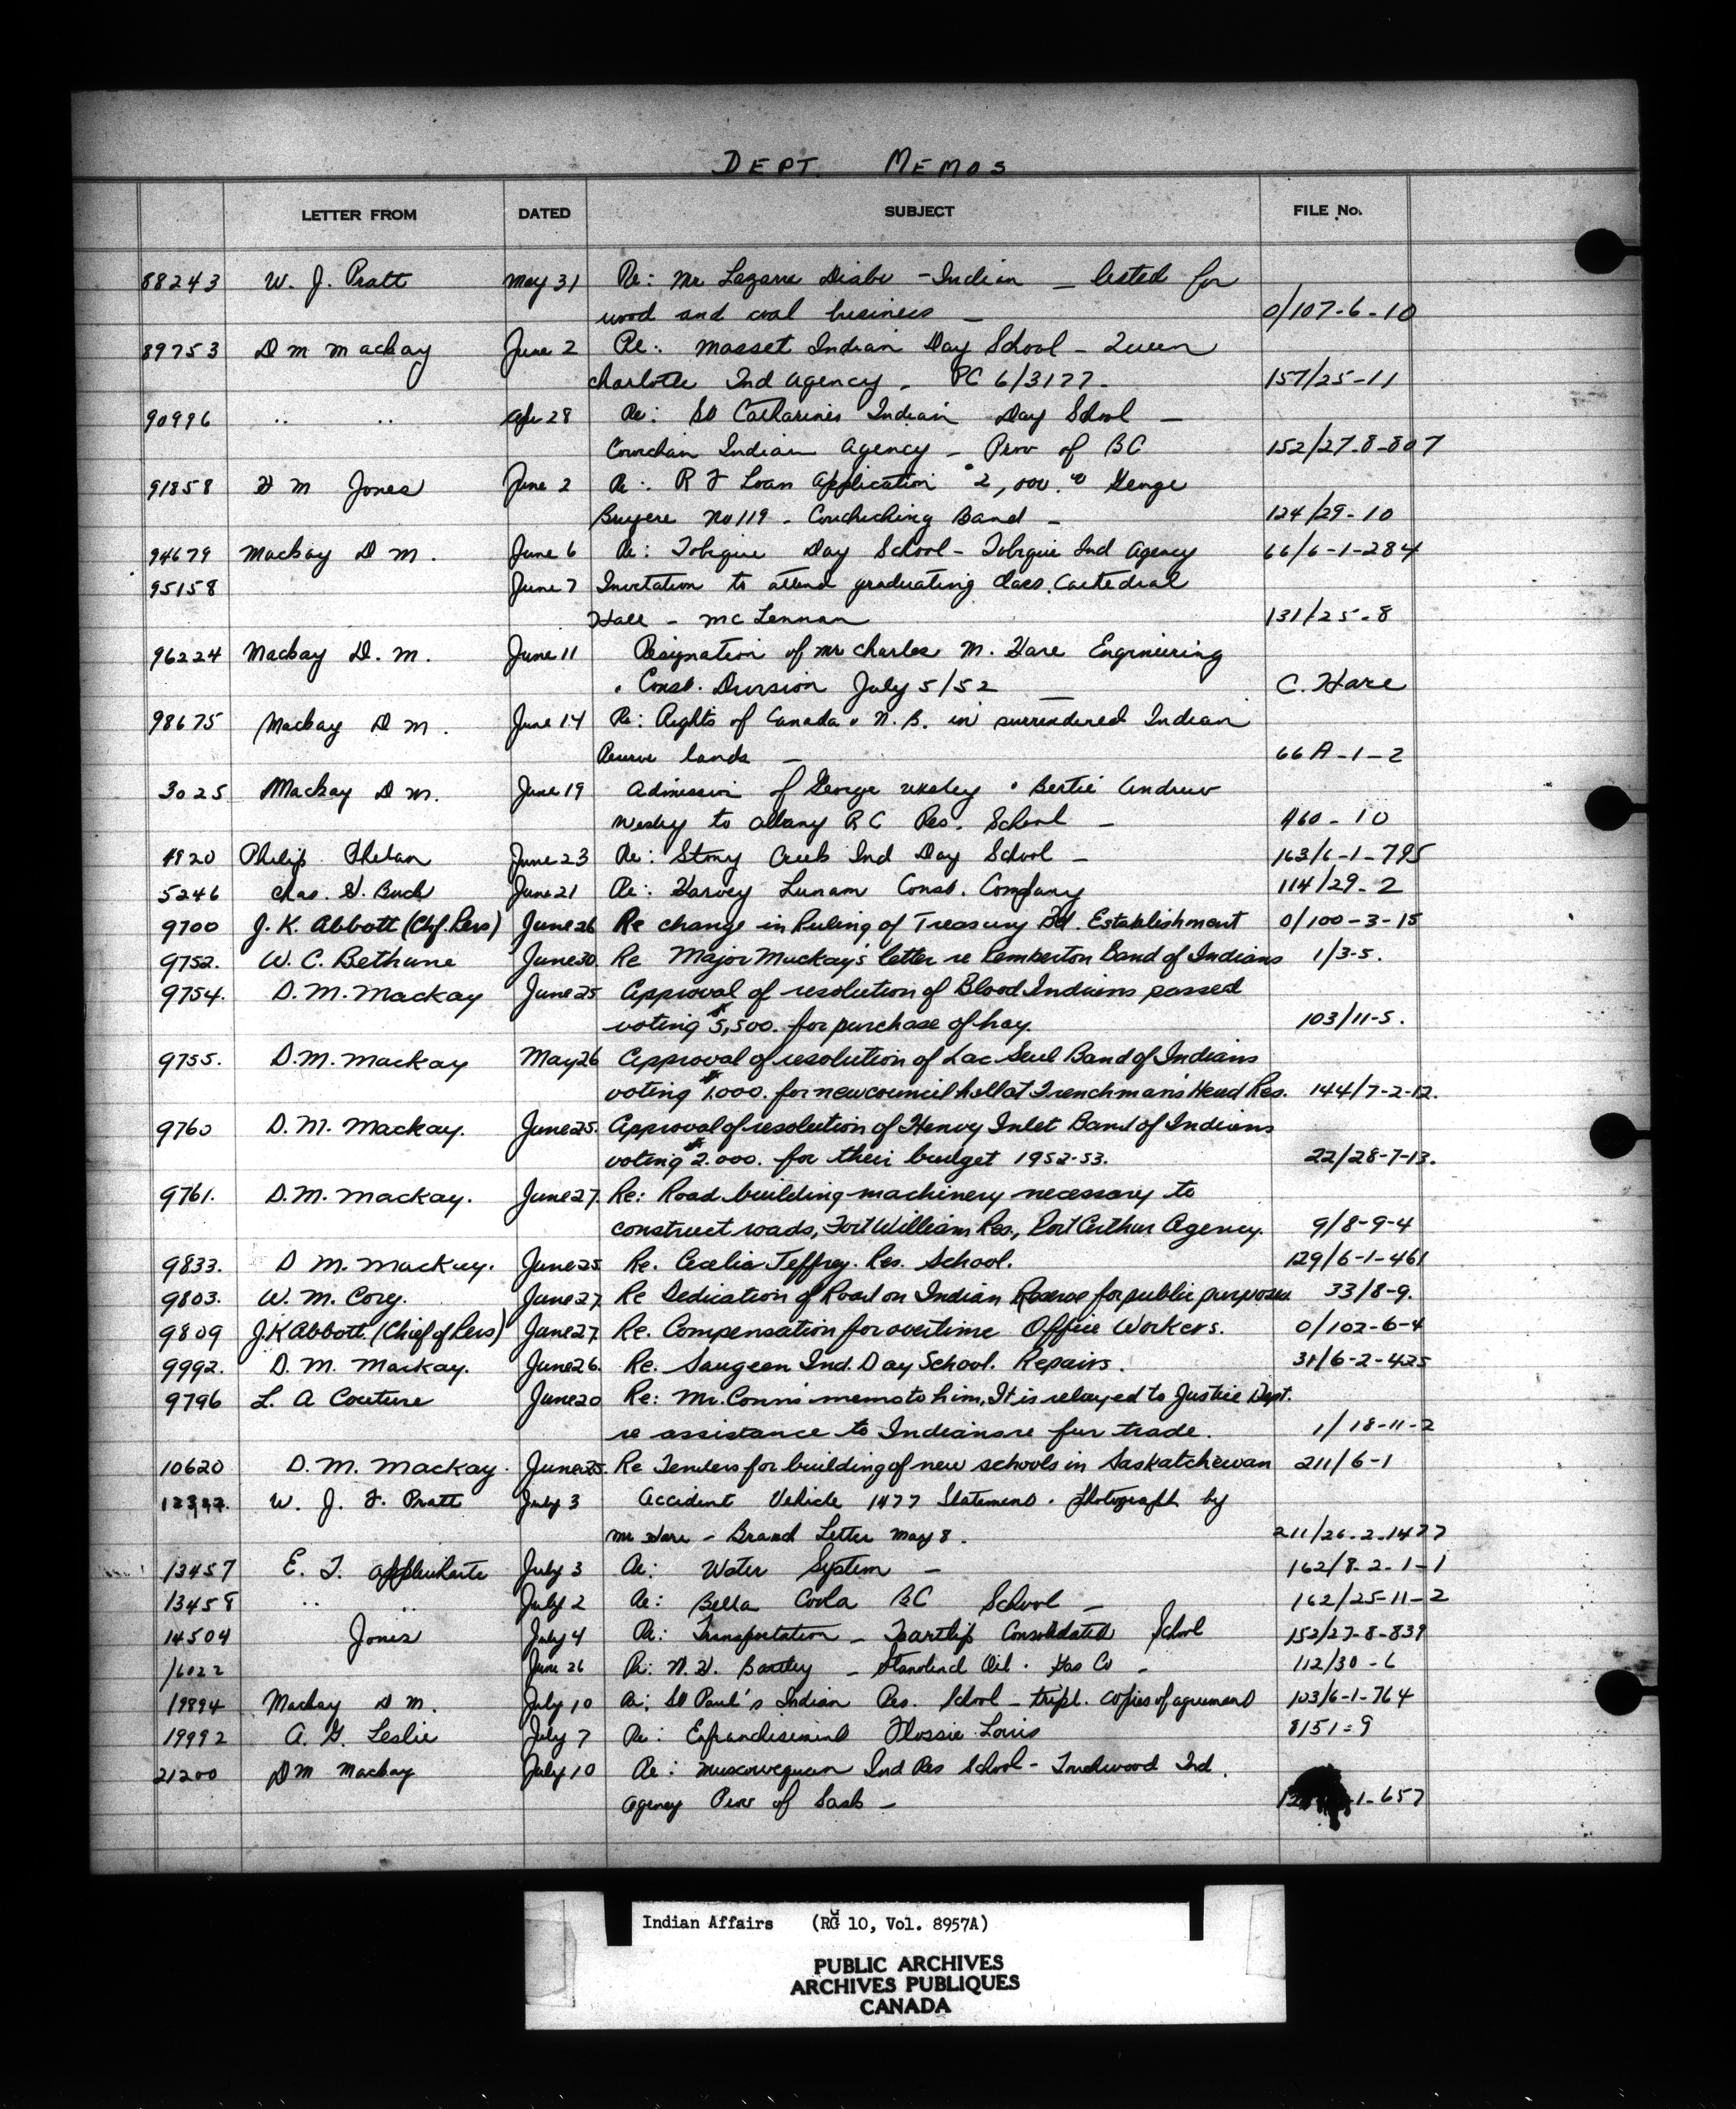 DEPT. MEMOS
LETTER FROM DATED SUBJECT FILE No.
88243 W. J. Pratt May 31 Re: Mr Lazarre Diabo - Indian - listed for
wood and coal business - 0/107-6-10
89753 D M Mackay June 2 Re: Masset Indian Day School - Queen
Charlotte Ind Agency - PC 6/3177- 157/25-11
90996 " " Apr 28 Re: St Catharines Indian Day School -
Cowichan Indian Agency - Prov of BC 152/27-8-807
91858 F M Jones June 2 Re: R F Loan Application $2,000.00 George
Bruyere No 119 - Couchiching Band - 124/29-10
94679 Mackay D M. June 6 Re: Tobique Day School - Tobique Ind Agency 66/6-1-284
95158 June 7 Invitation to attend graduating class. Cathedral
Hall - McLennan 131/25-8
96224 Mackay D. M. June 11 Resignation of Mr Charles M. Hare Engineering
& Const. Division July 5/52 - C. Hare
98675 Mackay D M. June 14 Re: Rights of Canada & N. B. in surrendered Indian
Reserve lands - 66A-1-2
3025 Mackay D M. June 19 Admission of George Wesley & Bertie Andrew
Wesley to Albany R C Res. School - 460-10
4920 Philip Phelan June 23 Re: Stony Creek Ind Day School - 163/6-1-795
5246 Chas. H. Buck June 21 Re: Harvey Lunam Const. Company 114/29-2
9700 J. K. Abbott (Chf. Pers) June 26 Re change in Ruling of Treasury Bd. Establishment 0/100-3-15
9752. W. C. Bethune June 30. Re Major Mackay's letter re Pemberton Band of Indians 1/3-5.
9754. D. M. Mackay June 25 Approval of resolution of Blood Indians passed
voting $5,500. for purchase of hay. 103/11-5.
9755. D. M. Mackay May 26 Approval of resolution of Lac Seul Band of Indians
voting $1,000. for new council hall at Frenchman's Head Res. 144/7-2-12.
9760 D. M. Mackay. June 25. Approval of resolution of Henvy Inlet Band of Indians
voting $2.000. for their budget 1952-53. 22/28-7-13.
9761. D. M. Mackay. June 27. Re: Road building machinery necessary to
construct roads, Fort William Res., Port Arthur Agency. 9/8-9-4
9833. D M. Mackay. June 25 Re. Cecelia Jeffrey. Res. School. 129/6-1-461
9803. W. M. Cory. June 27. Re Dedication of Road on Indian Reserve for public purposes 33/8-9.
9809 J.K Abbott. (Chief of Pers) June 27. Re. Compensation for overtime Office Workers. 0/102-6-4
9992. D. M. Mackay. June 26. Re. Saugeen Ind. Day School. Repairs. 31/6-2-425
9796 L. A Couture June 20 Re: Mr. Conn's memo to him, It is relayed to Justice Dept.
re assistance to Indians re fur trade. 1/18-11-2
10620 D. M. Mackay. June 25. Re Tenders for building of new schools in Saskatchewan 211/6-1
W. J. F. Pratt July 3 Accident Vehicle 1477 Statement & photograph by
Mr Hare - Brand Letter May 8. 211/26-2-1477
13457 E. T. Applewhaite July 3 Re: Water System - 162/8-2-1-1
13458 " " July 2 Re: Bella Coola BC School - 162/25-11-2
14504 Jones July 4 Re: Transportation - Tsartlip Consolidated School 152/27-8-839
16022 June 26 Re: N. H. Bartley - Stanolind Oil & Gas Co - 112/30-6
19894 Mackay D M. July 10 Re: St Paul's Indian Res. School - tripl. copies of agreement 103/6-1-764
19992 A. G. Leslie July 7 Re: Enfranchisement Flossie Louis 8151-9
21200 D M Mackay July 10 Re: Muscowequan Ind Res School - Touchwood Ind.
Agency Prov of Sask - -1-657
Indian Affairs (RG 10, Vol. 8957A)
PUBLIC ARCHIVES
ARCHIVES PUBLIQUES
CANADA